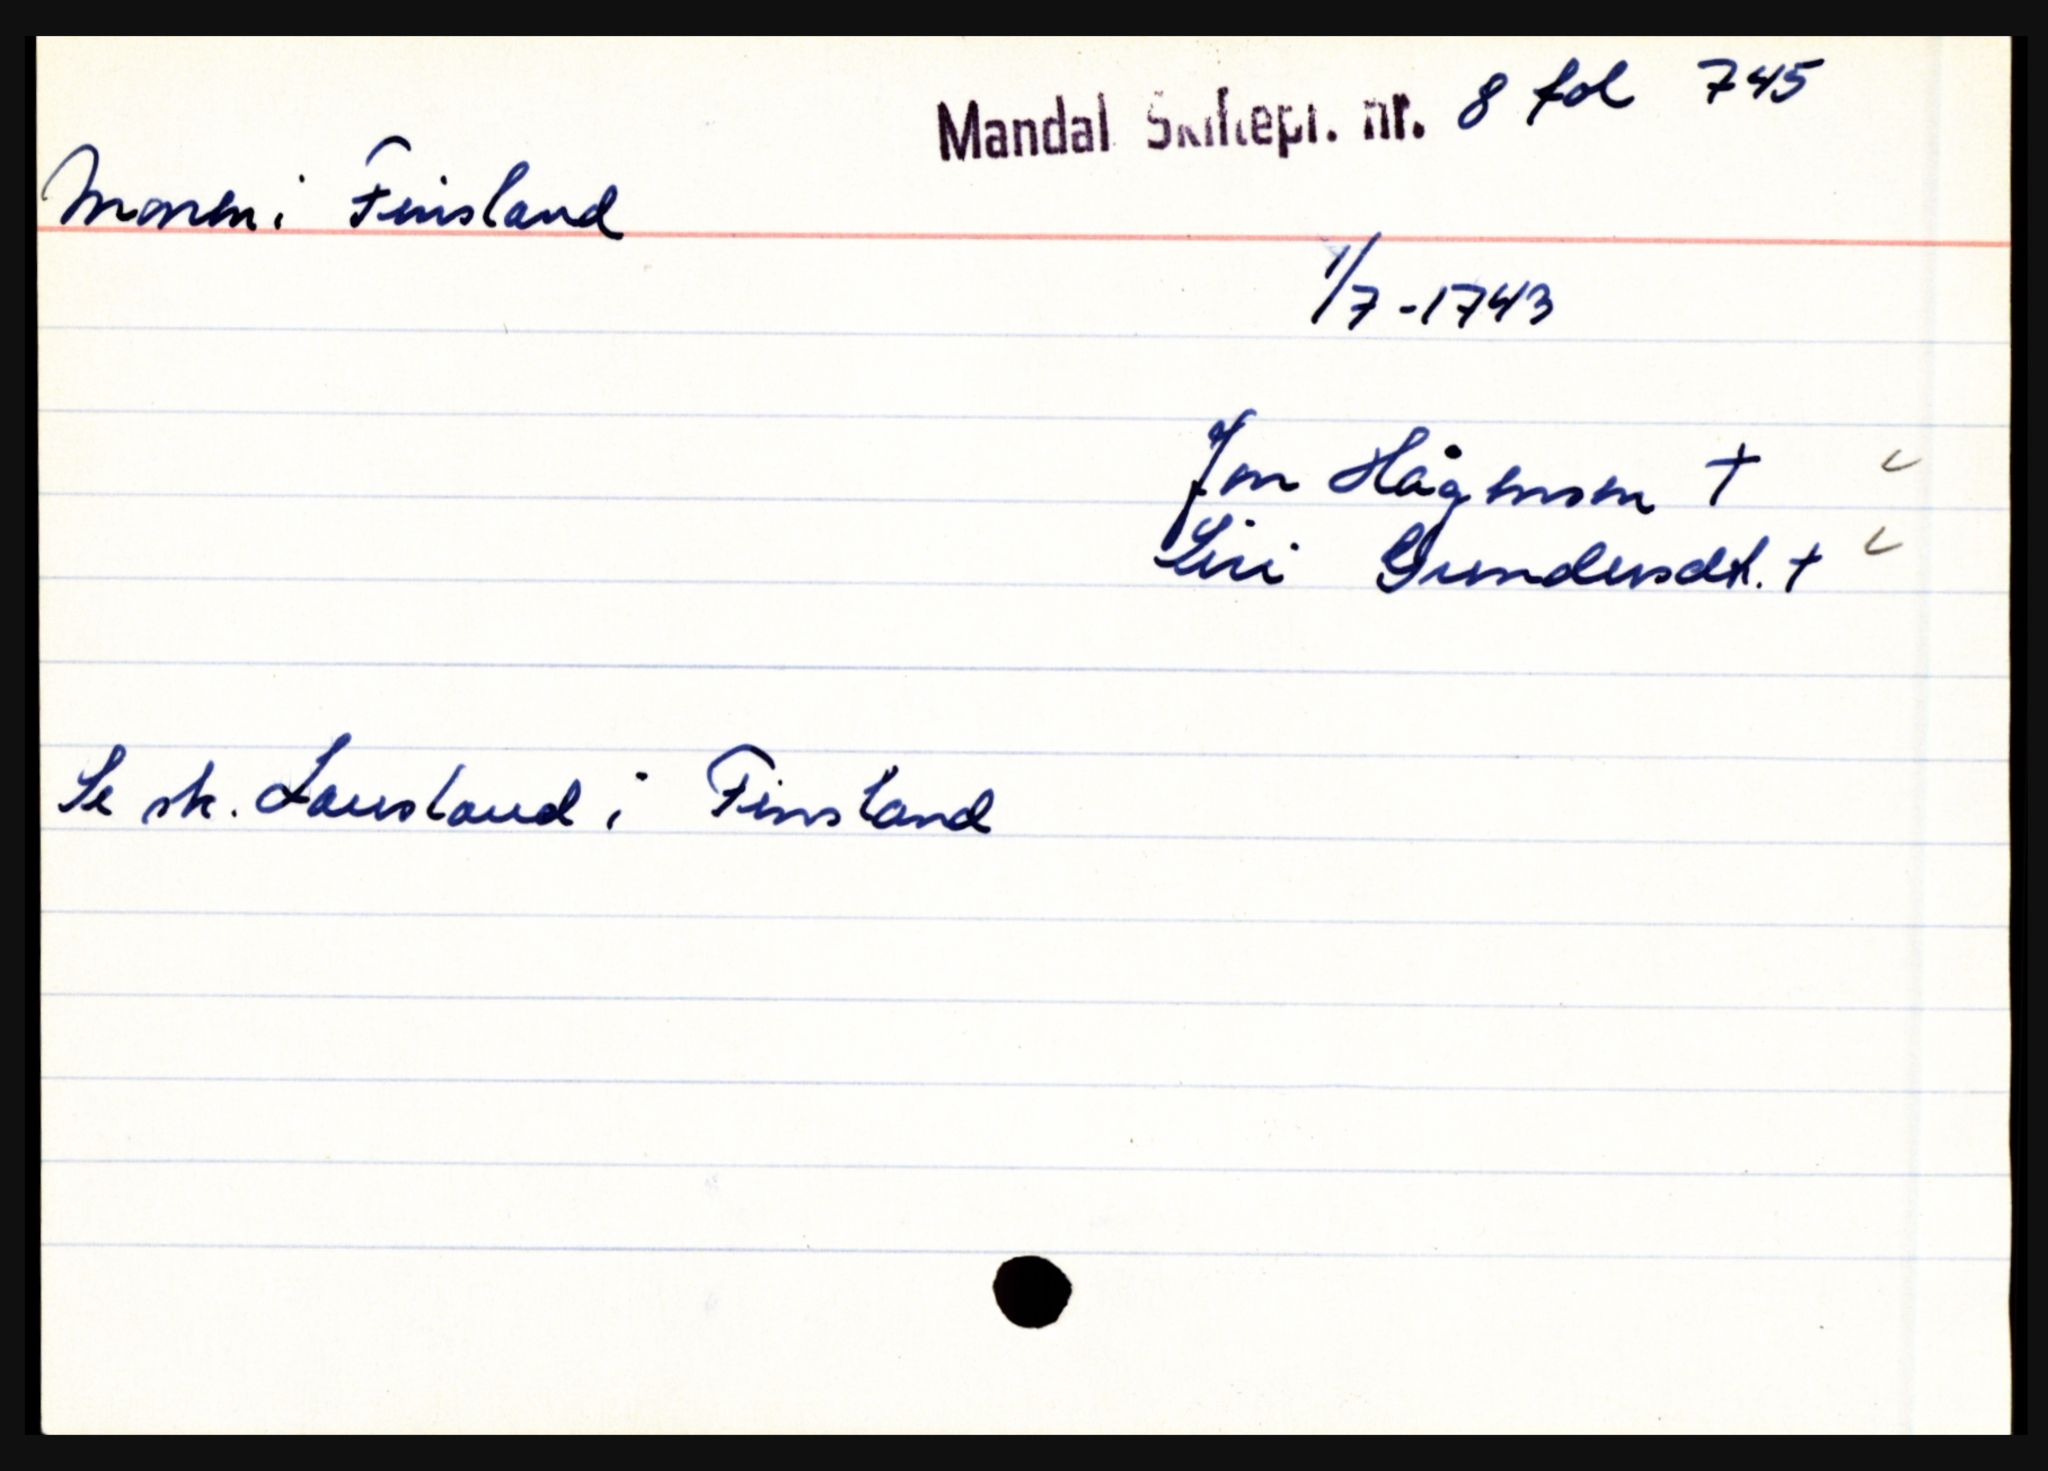 Mandal Skiftepr. nr. 8 fol 745
Monen i Finsland
1/7-1743
Jon Hågensen +
Siri Gundersdt. +
Se sk. Lausland i Finsland